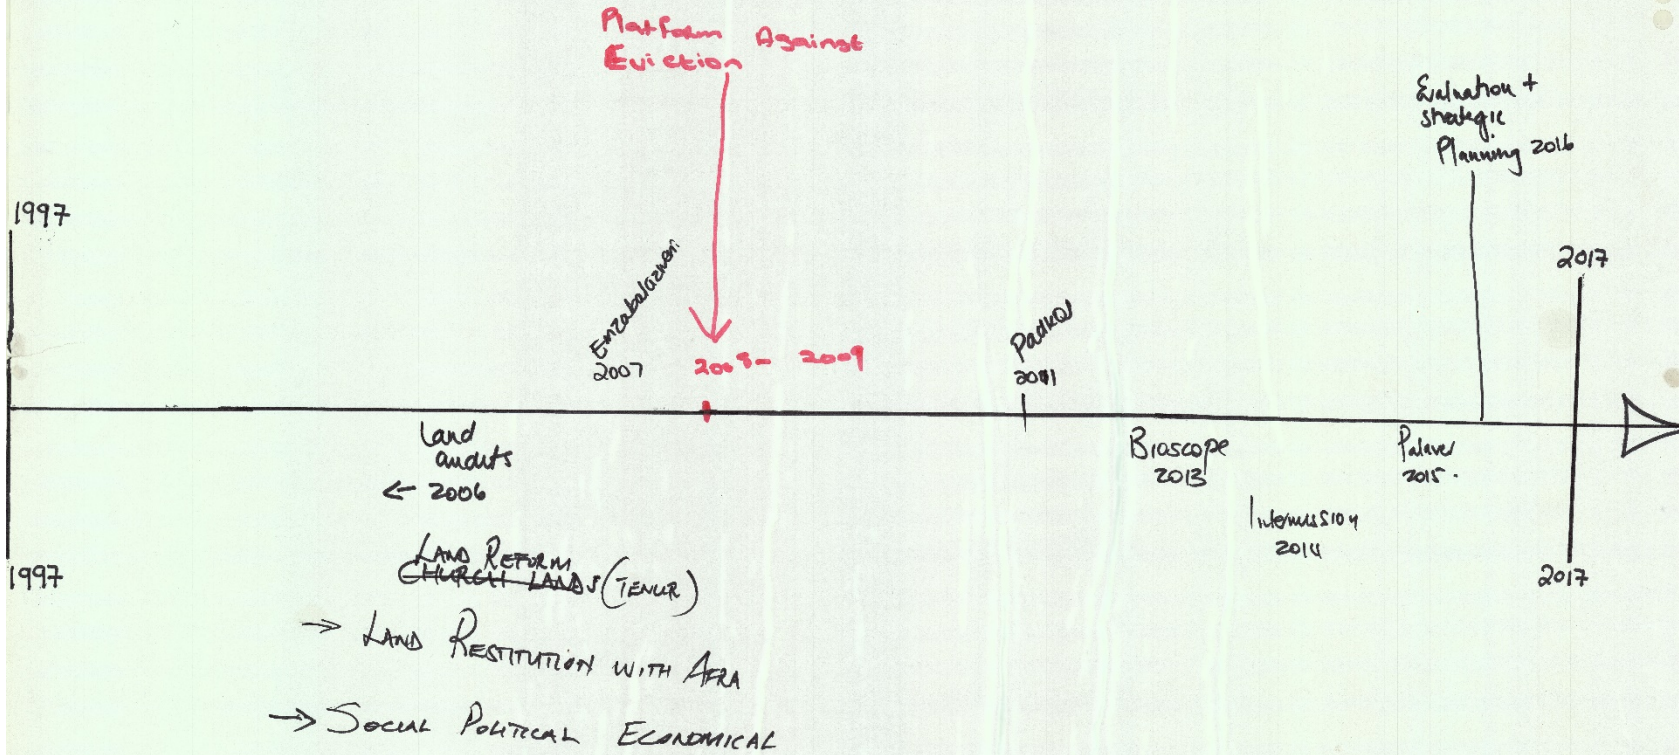 Platform Against
Eviction
Evaluation +
strategic
Planning 2016
1997
2017
Emzabalazweni
2007
2008- 2009
Padkos
2011
Land
audits
← 2006
Bioscope
2013
Palaver
2015.
Intermission
2014
1997
2017
LAND REFORM
CHURCH LANDS (TENUR)
→ LAND RESTITUTION WITH AFRA
→ SOCIAL POLITICAL ECONOMICAL